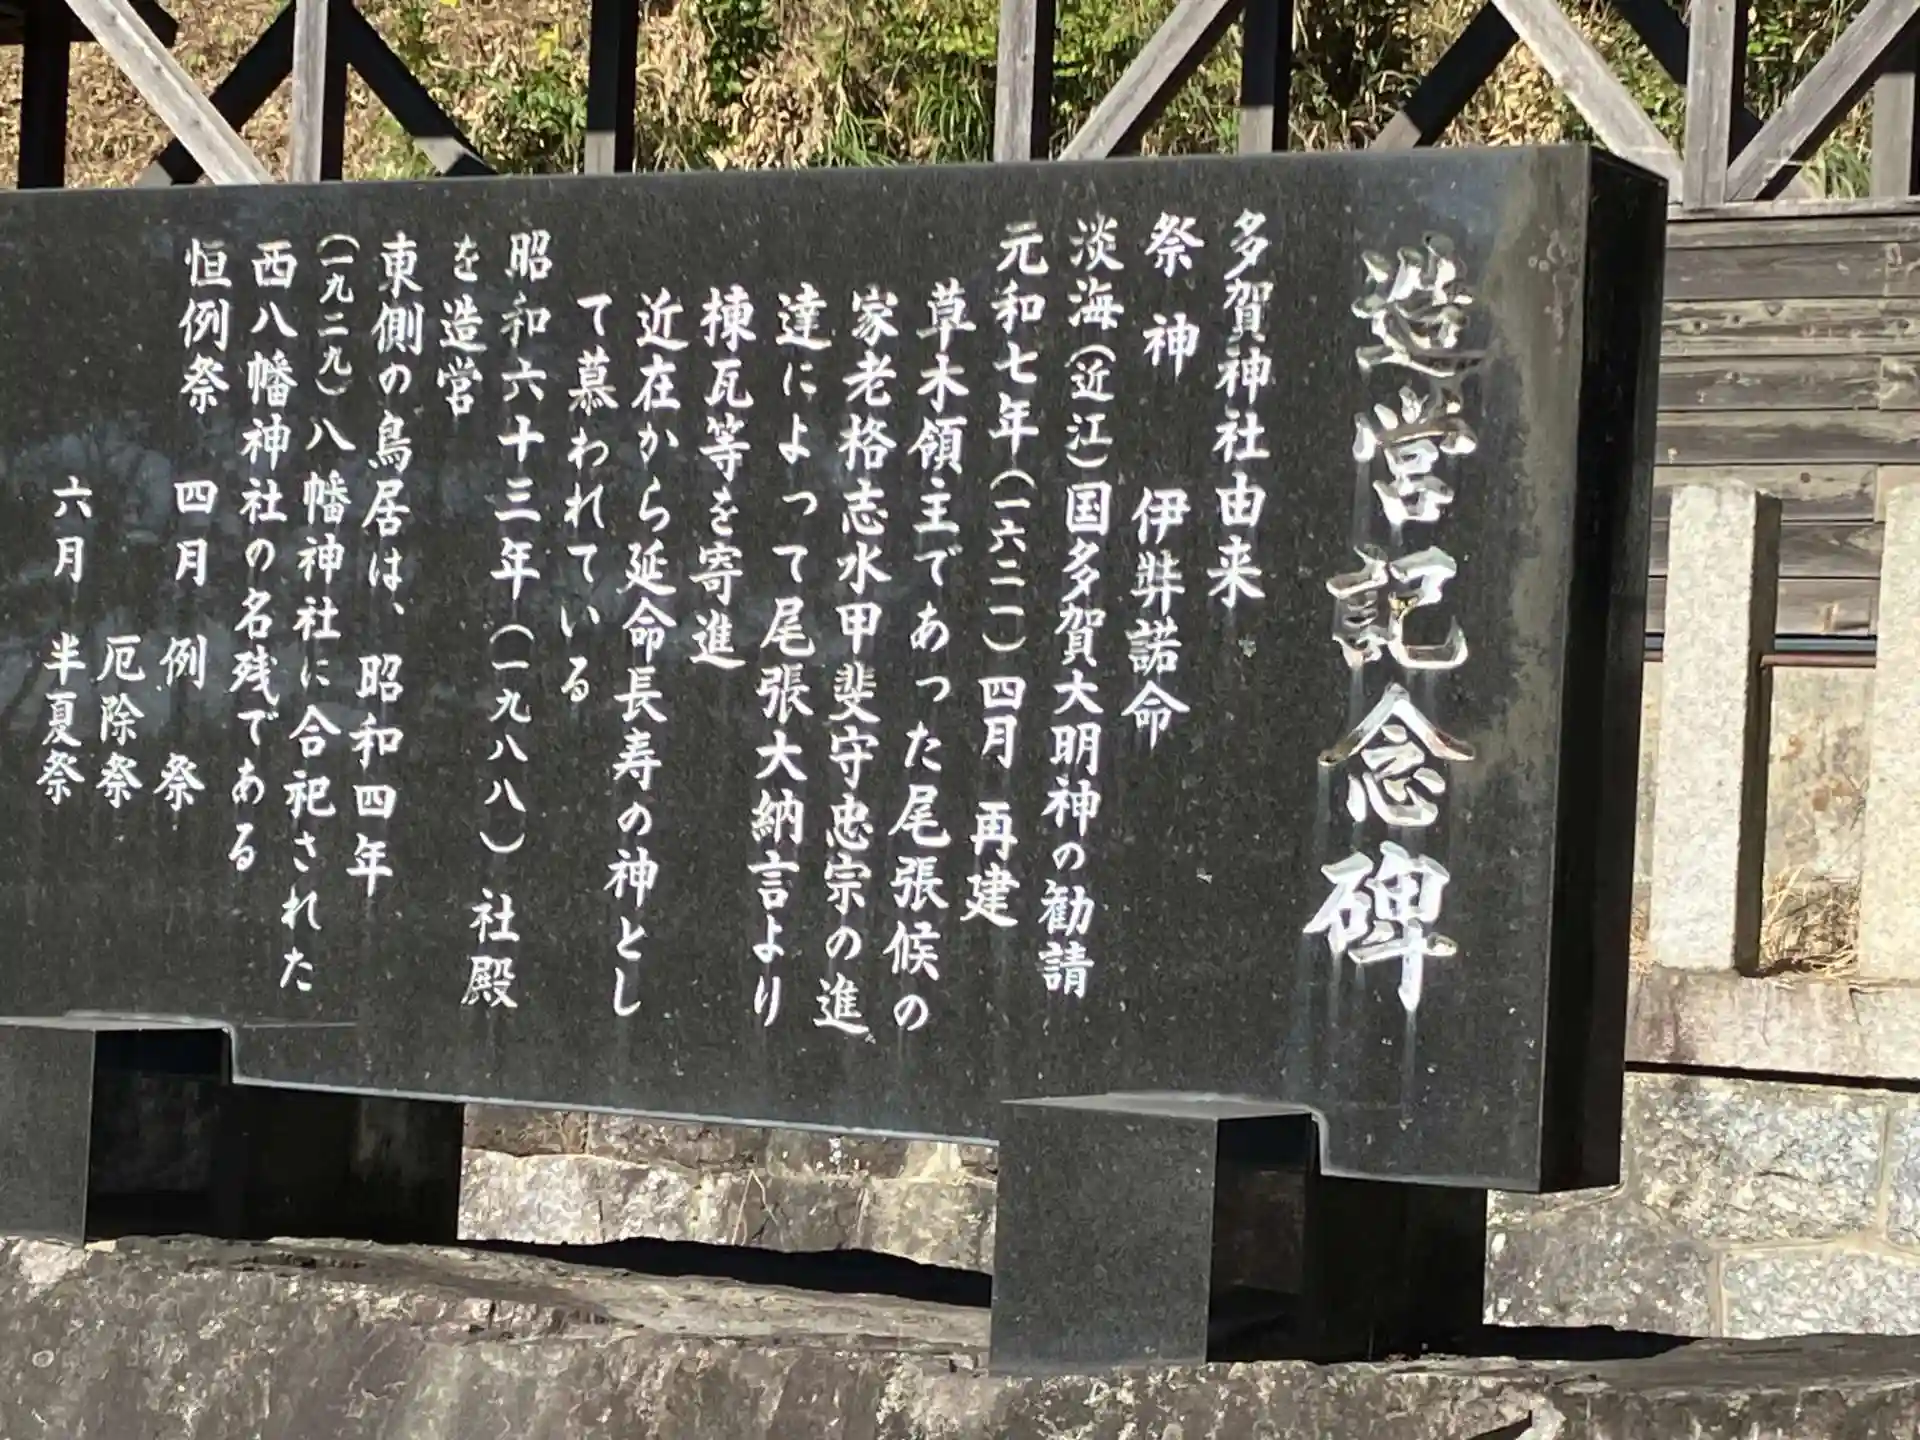 造営記念碑
多賀神社由来
祭神 伊弉諾命
淡海（近江）国多賀大明神の勧請
元和七年（一六二一）四月 再建
草木領主であった尾張候の
家老格志水甲斐守忠宗の進
達によって尾張大納言より
棟瓦等を寄進
近在から延命長寿の神とし
て慕われている
昭和六十三年（一九八八）社殿
を造営
東側の鳥居は、昭和四年
（一九二九）八幡神社に合祀された
西八幡神社の名残である
恒例祭 四月 例 祭
厄除祭
六月 半夏祭